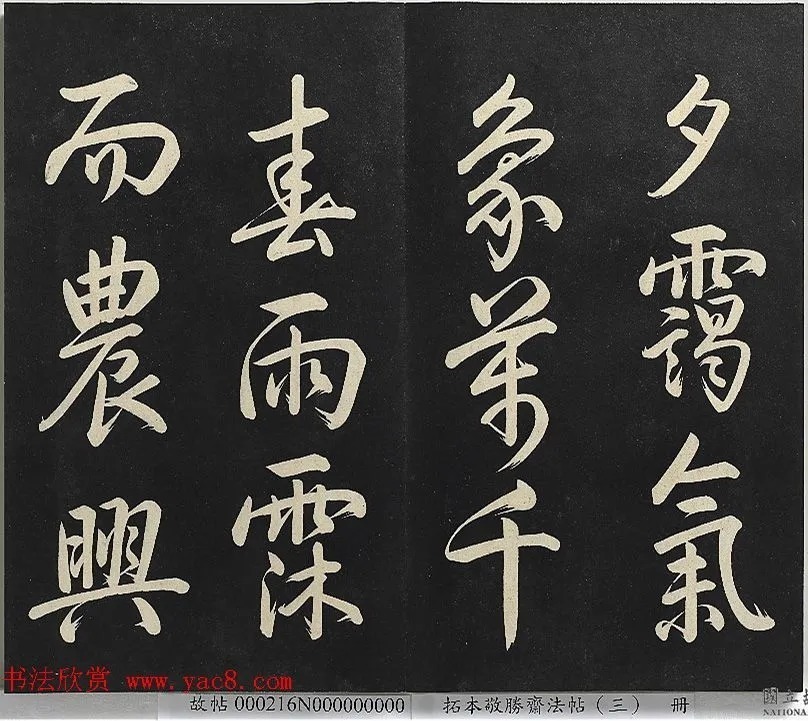 夕靄氣
象萬千
春雨霂
而農興
书法欣赏 www.yac8.com
故帖 000216N000000000 拓本敬勝齋法帖（三） 册
國立